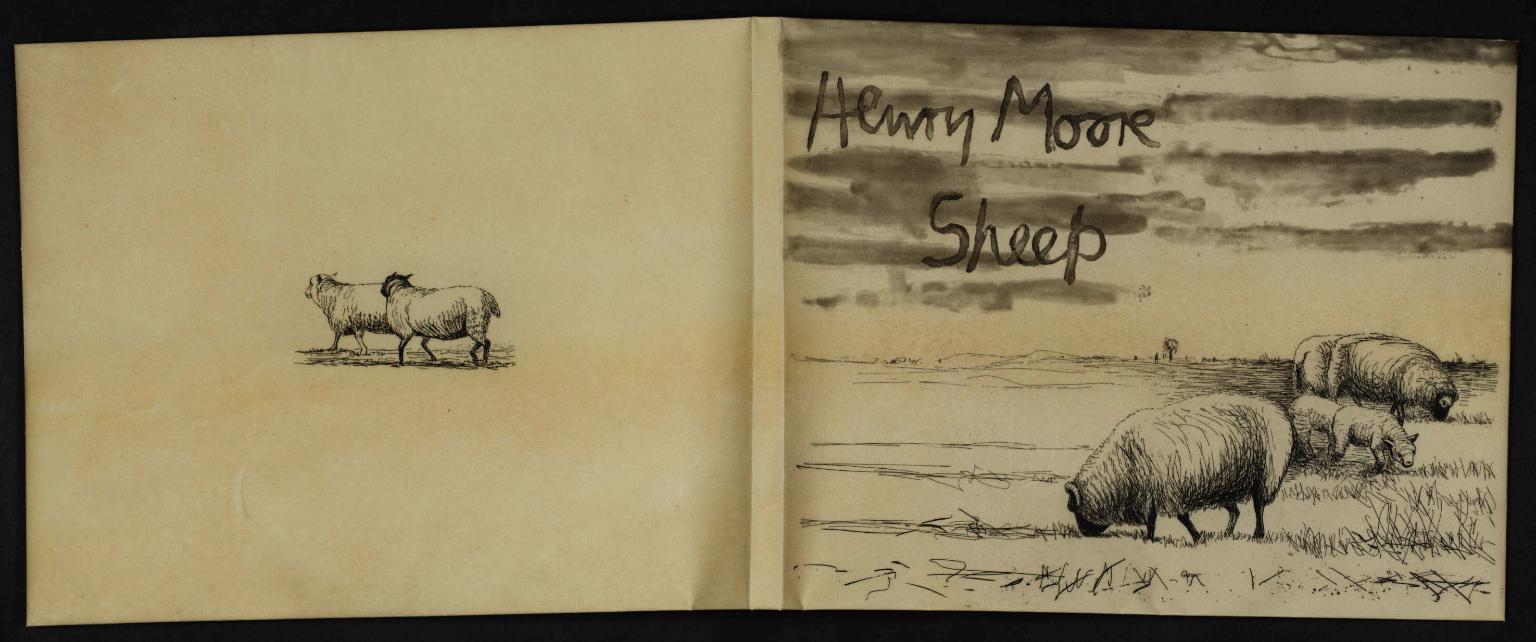 Henry Moore
Sheep